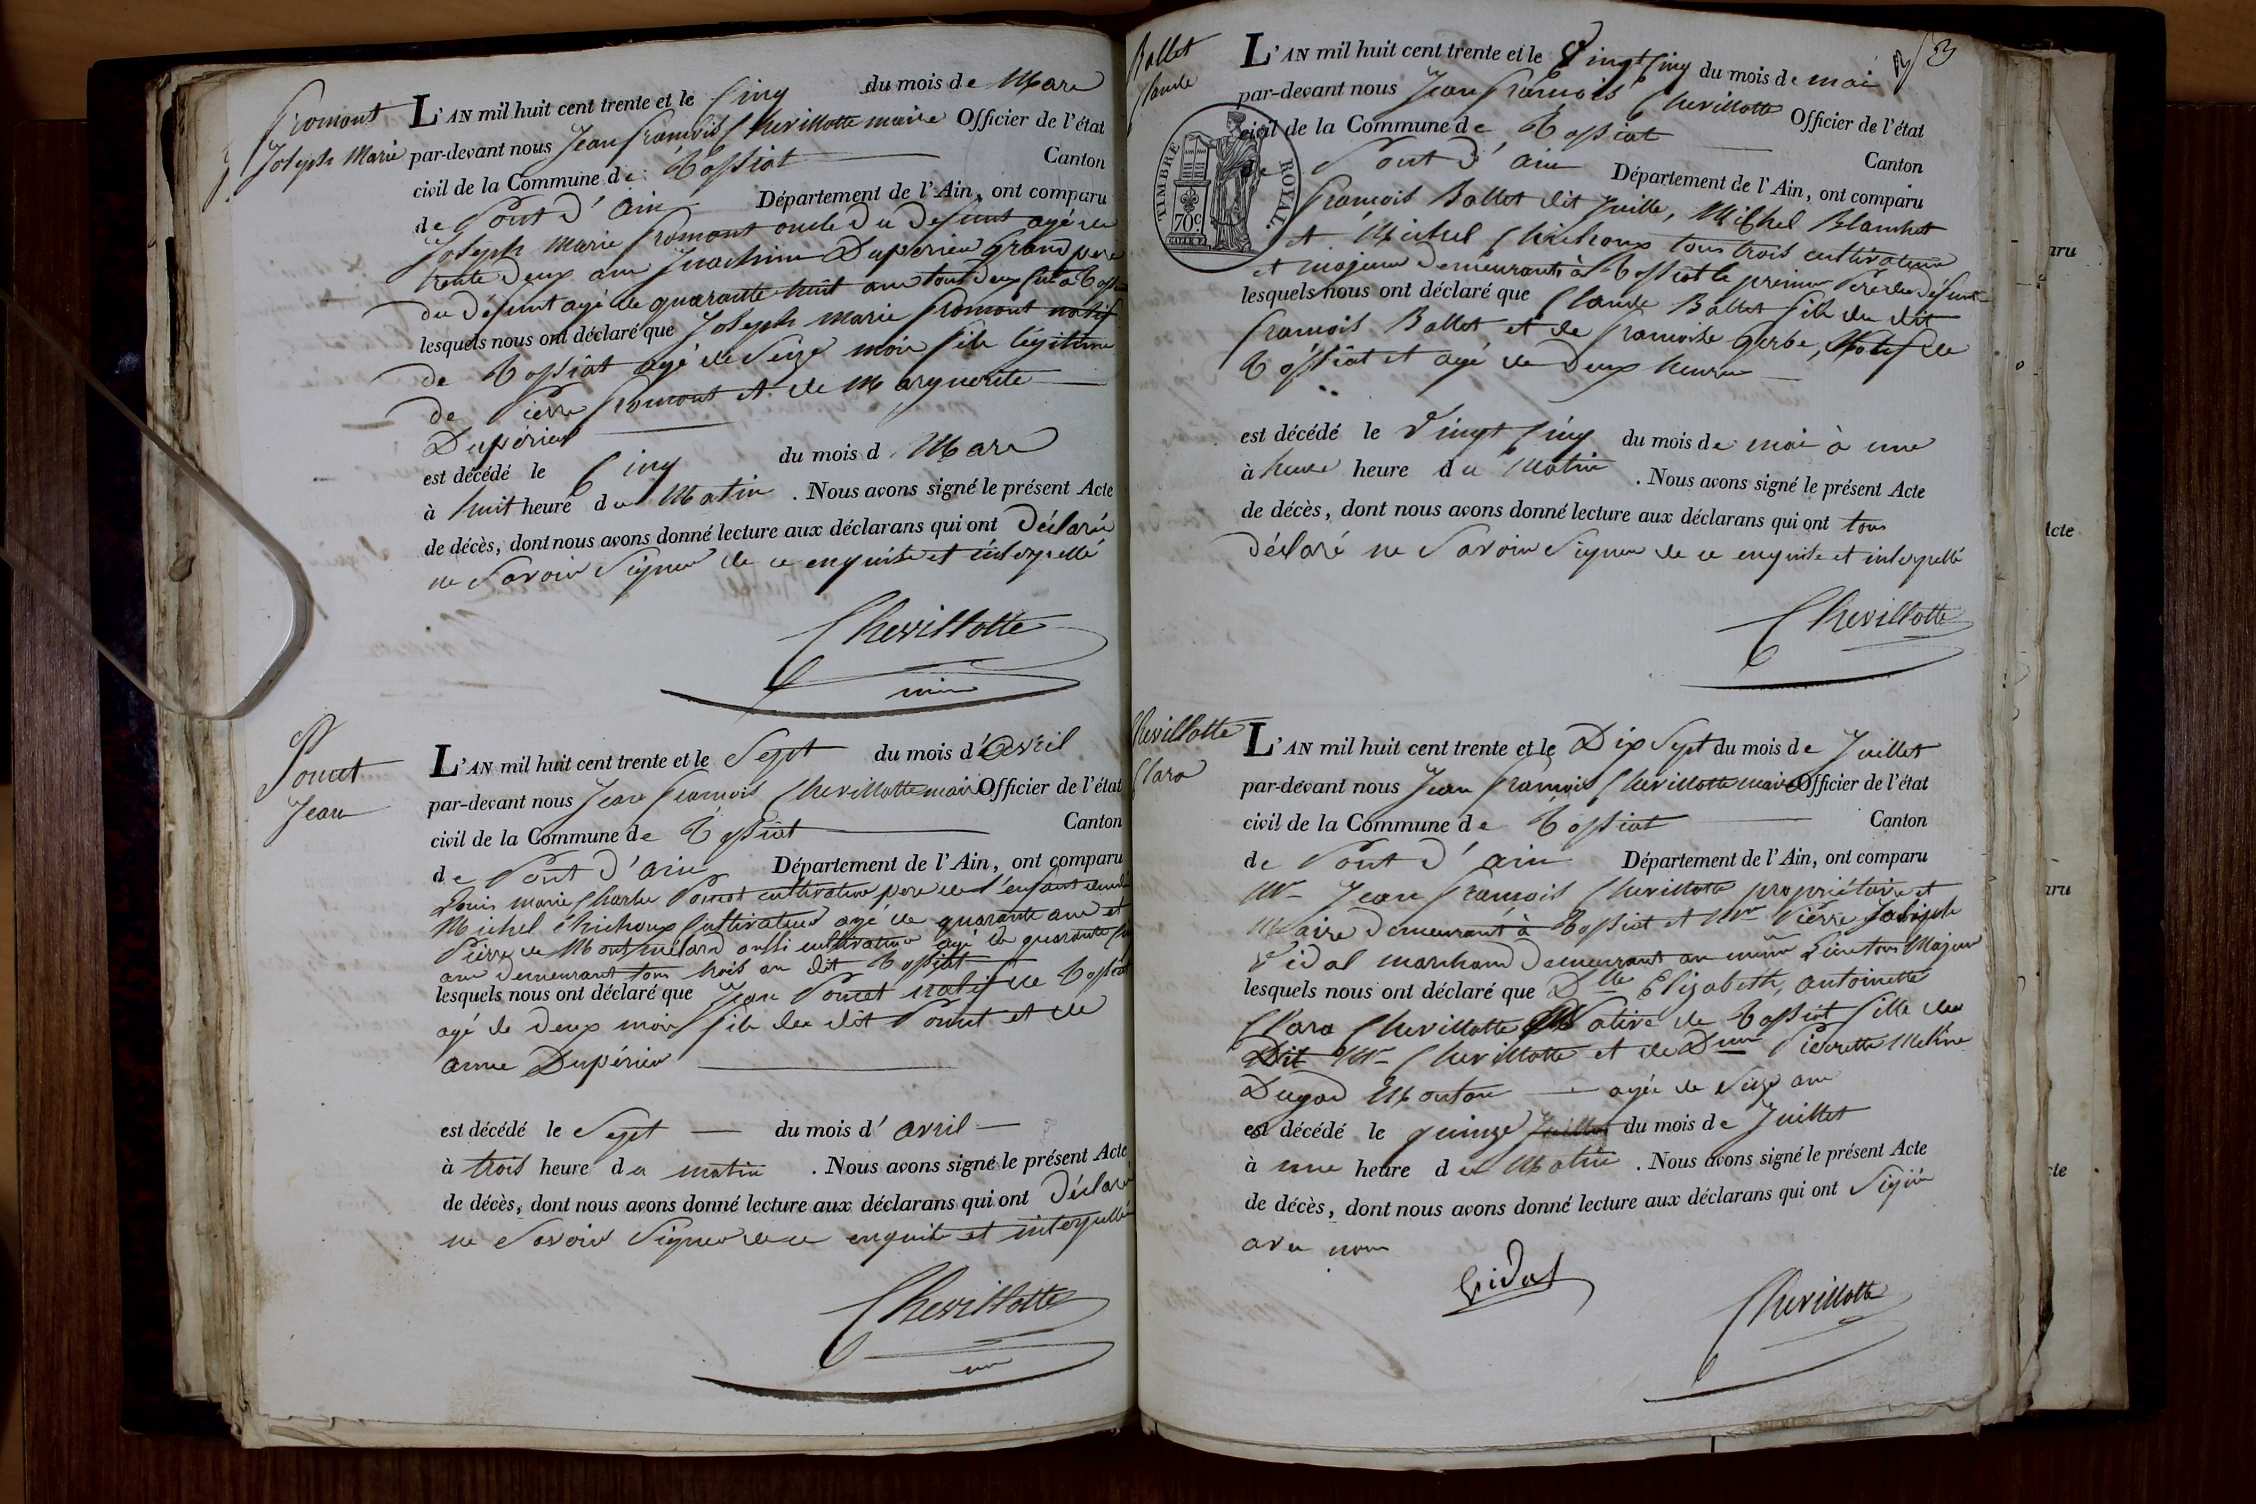 Fromont
Joseph Marie
L'AN mil huit cent trente et le Cinq du mois de Mars
par-devant nous Jean francois Chevillotte maire Officier de l'état
civil de la Commune de Tossiat Canton
de Pont d'ain Département de l'Ain, ont comparu
Joseph Marie fromont oncle du defunt agé de
trente deux ans Joachim Duperier grand pere
du défunt agé de quarante huit ans tous deux
lesquels nous ont déclaré que Joseph Marie fromont natif
de Tossiat agé de Seize mois fils légitime
de Pierre fromont et de Marguerite
Dupérier
est décédé le Cinq du mois d Mars
à huit heure du Matin . Nous avons signé le présent Acte
de décès, dont nous avons donné lecture aux déclarans qui ont Déclaré
ne Savoir Signer de ce enquis et interpellé
Chevillotte
Poncet
Jean
L'AN mil huit cent trente et le Sept du mois d'Avril
par-devant nous Jean francois Chevillotte maire Officier de l'état
civil de la Commune de Tossiat Canton
de Pont d'ain Département de l'Ain, ont comparu
Louis marie Charles Poncet cultivateur pere de l'enfant
Michel Chichoux Cultivateur agé de quarante ans et
Pierre de Montmélard aussi cultivateur agé de quarante
ans demeurant tous trois au dit Tossiat
lesquels nous ont déclaré que Jean Poncet natif de Tossiat
agé de deux mois fils du dit Poncet et de
anne Dupérier
est décédé le Sept du mois d'avril
à trois heure du matin . Nous avons signé le présent Acte
de décès, dont nous avons donné lecture aux déclarans qui ont Déclaré
ne Savoir Signer de ce enquis et interpellé
Chevillotte
Ballet
Claude
L'AN mil huit cent trente et le Vingt Cinq du mois de mai
par-devant nous Jean francois Chevillotte Officier de l'état
civil de la Commune de Tossiat Canton
de Pont d'ain Département de l'Ain, ont comparu
TIMBRE ROYAL
70 c
francois Ballet dit Juille, Michel Blanchet
et Michel Chichoux tous trois cultivateurs
et majeurs demeurants à Tossiat le premier Pére du défunt
lesquels nous ont déclaré que Claude Ballet fils du dit
francois Ballet et de francoise Gerbe, Natif de
Tossiat et agé de Deux heures
est décédé le Vingt Cinq du mois de mai à une
à heure heure du Matin . Nous avons signé le présent Acte
de décès, dont nous avons donné lecture aux déclarans qui ont tous
déclaré ne Savoir Signer de ce enquis et interpellé
Chevillotte
Chevillotte
Clara
L'AN mil huit cent trente et le Dix Sept du mois de Juillet
par-devant nous Jean francois Chevillotte maire Officier de l'état
civil de la Commune de Tossiat Canton
de Pont d'ain Département de l'Ain, ont comparu
Mr Jean francois Chevillotte propriétaire et
Maire demeurant à Tossiat et Mr Pierre Joseph
Vidal marchand demeurant au même Lieu tous Majeurs
lesquels nous ont déclaré que Dlle Elizabeth, antoinette
Clara Chevillotte Native de Tossiat fille du
Dit Mr Chevillotte et de Dme Pierrette
Dugad Mouton agée de Seize ans
est décédé le quinze du mois de Juillet
à une heure du Matin . Nous avons signé le présent Acte
de décès, dont nous avons donné lecture aux déclarans qui ont Signé
avec nous
Vidal
Chevillotte